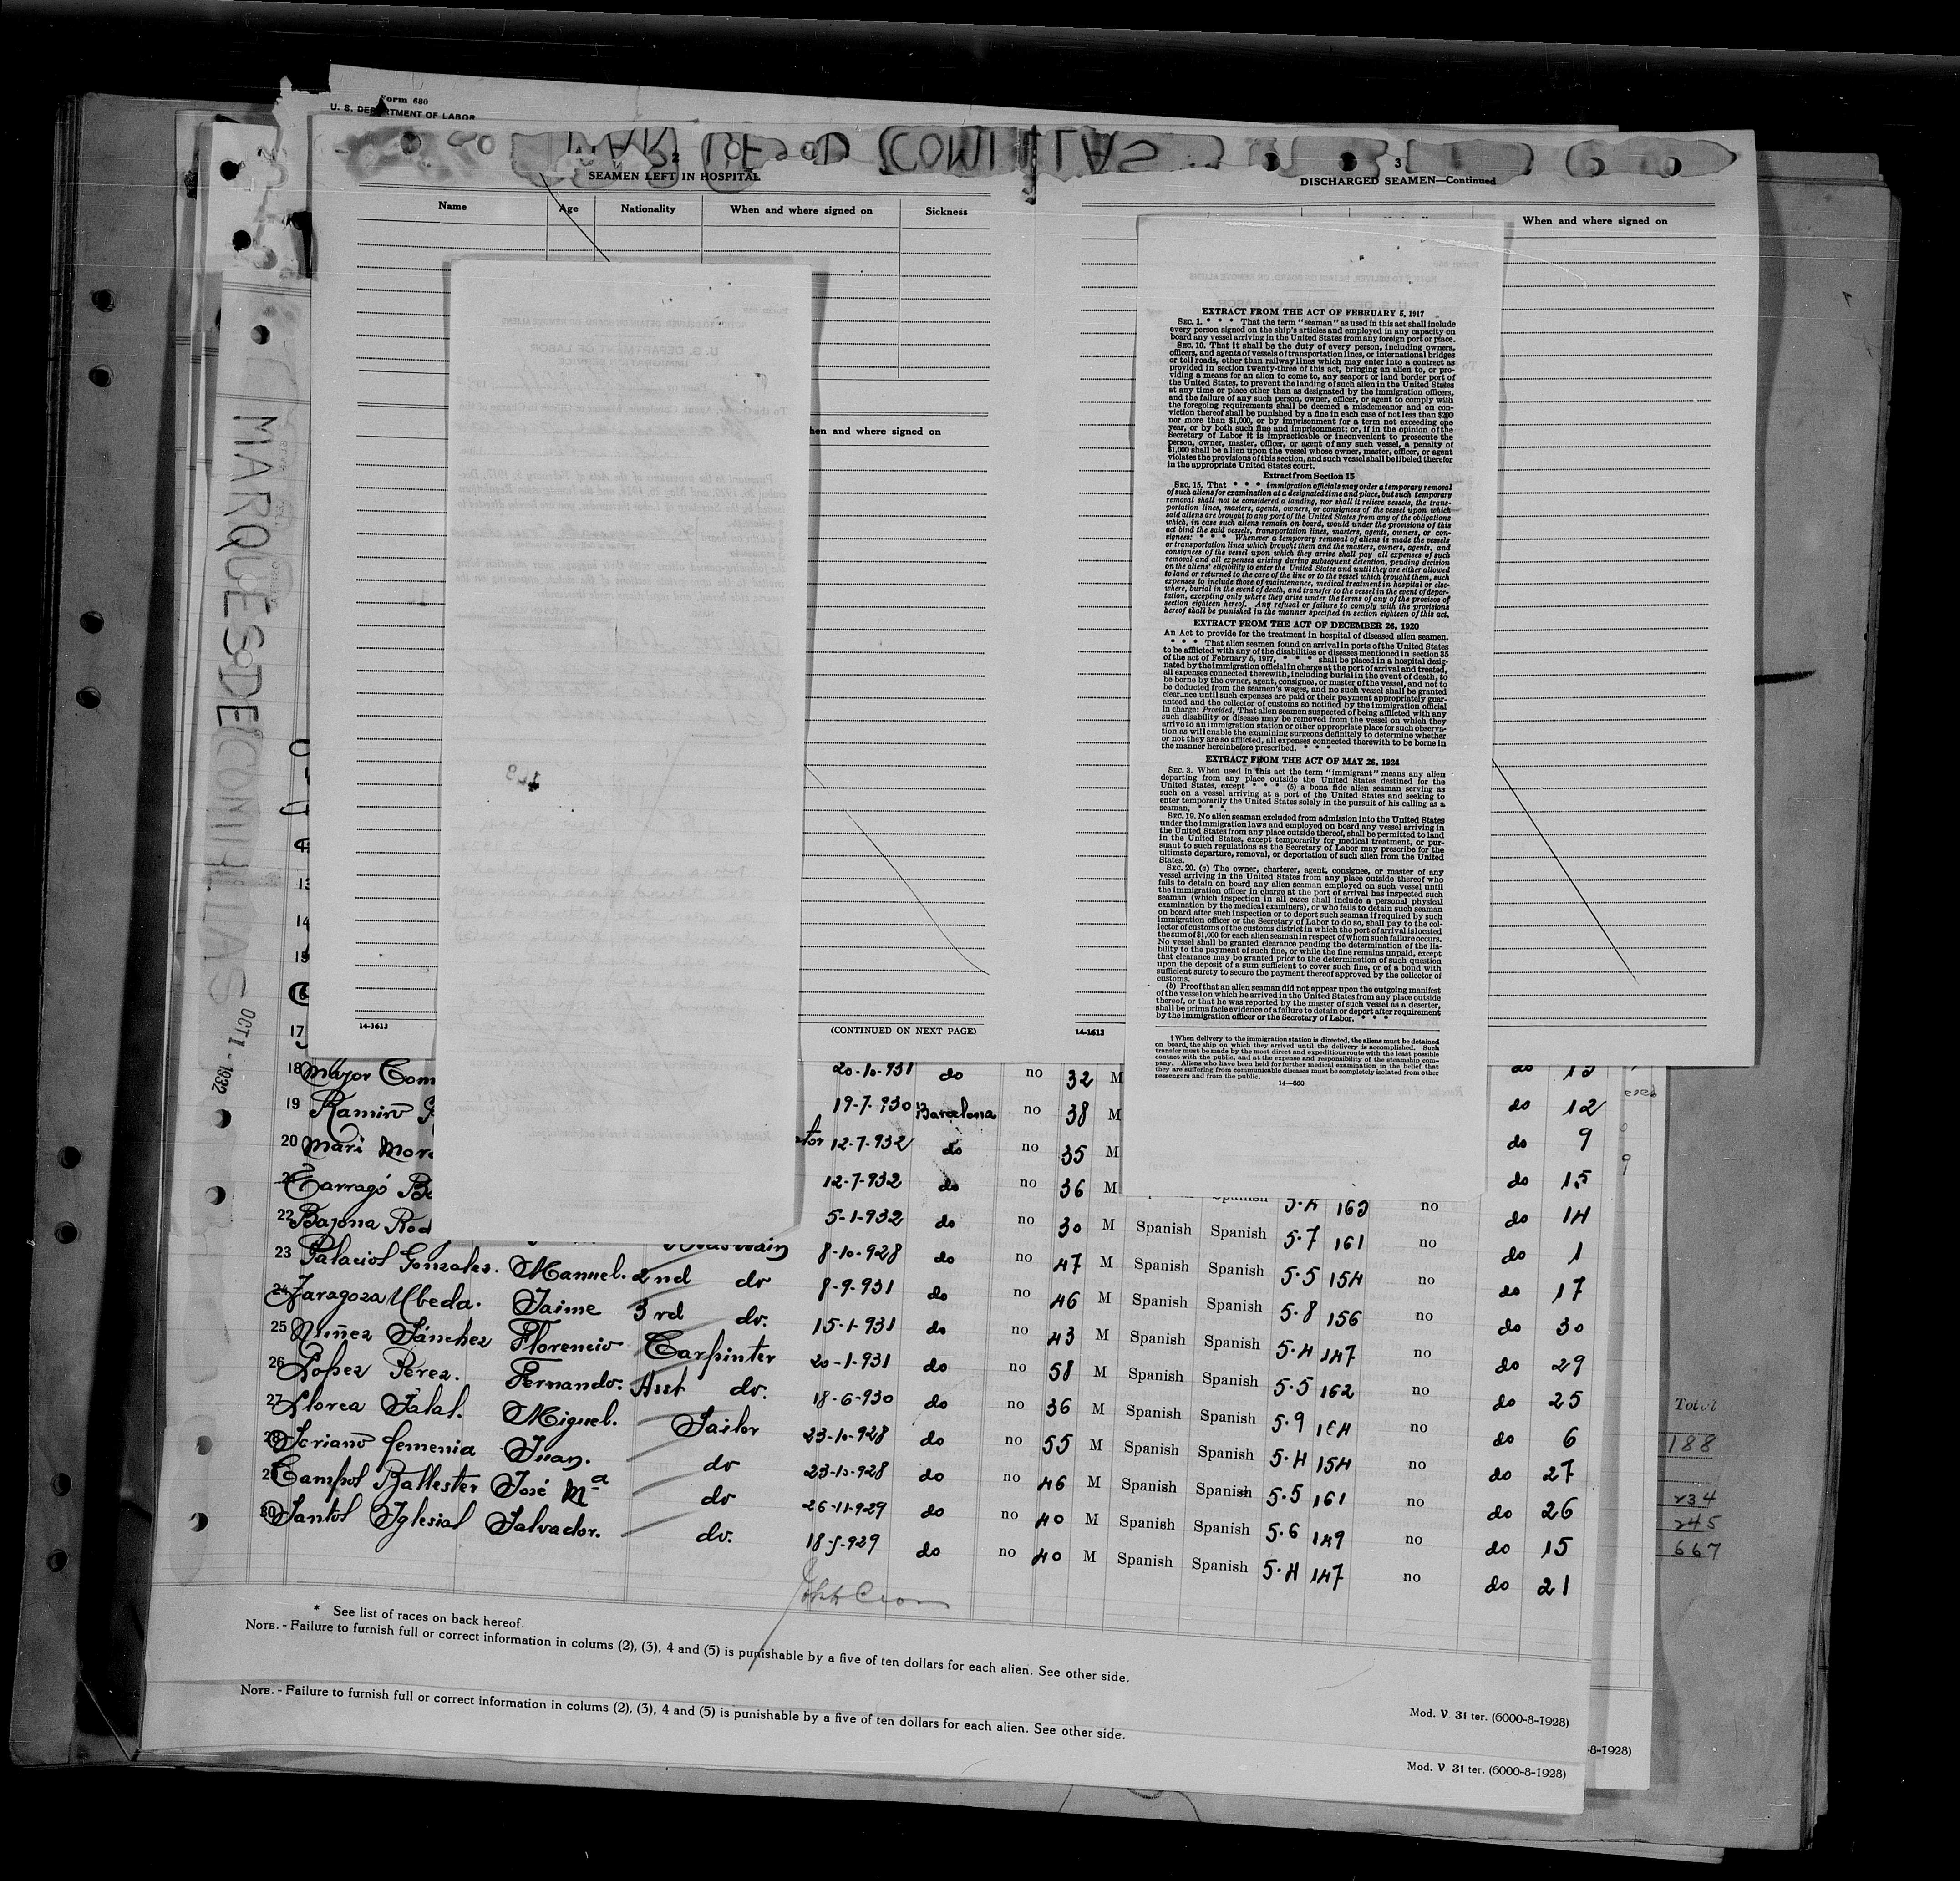 Form 680
U. S. DEPARTMENT OF LABOR
MARQUES DE COMILLAS
OCT 1 - 1932
2
SEAMEN LEFT IN HOSPITAL
Name Age Nationality When and where signed on Sickness
hen and where signed on
14-1613
(CONTINUED ON NEXT PAGE)
3
DISCHARGED SEAMEN—Continued
When and where signed on
14-1613
EXTRACT FROM THE ACT OF FEBRUARY 5, 1917
SEC. 1. * * * That the term "seaman" as used in this act shall include
every person signed on the ship's articles and employed in any capacity on
board any vessel arriving in the United States from any foreign port or place.
SEC. 10. That it shall be the duty of every person, including owners,
officers, and agents of vessels of transportation lines, or international bridges
or toll roads, other than railway lines which may enter into a contract as
provided in section twenty-three of this act, bringing an alien to, or pro-
viding a means for an alien to come to, any seaport or land border port of
the United States, to prevent the landing of such alien in the United States
at any time or place other than as designated by the immigration officers,
and the failure of any such person, owner, officer, or agent to comply with
the foregoing requirements shall be deemed a misdemeanor and on con-
viction thereof shall be punished by a fine in each case of not less than $200
nor more than $1,000, or by imprisonment for a term not exceeding one
year, or by both such fine and imprisonment; or, if in the opinion of the
Secretary of Labor it is impracticable or inconvenient to prosecute the
person, owner, master, officer, or agent of any such vessel, a penalty of
$1,000 shall be a lien upon the vessel whose owner, master, officer, or agent
violates the provisions of this section, and such vessel shall be libeled therefor
in the appropriate United States court.
Extract from Section 15
SEC. 15. That * * * immigration officials may order a temporary removal
of such aliens for examination at a designated time and place, but such temporary
removal shall not be considered a landing, nor shall it relieve vessels, the trans-
portation lines, masters, agents, owners, or consignees of the vessel upon which
said aliens are brought to any port of the United States from any of the obligations
which, in case such aliens remain on board, would under the provisions of this
act bind the said vessels, transportation lines, masters, agents, owners, or con-
signees: * * * Whenever a temporary removal of aliens is made the vessels
or transportation lines which brought them and the masters, owners, agents, and
consignees of the vessel upon which they arrive shall pay all expenses of such
removal and all expenses arising during subsequent detention, pending decision
on the aliens' eligibility to enter the United States and until they are either allowed
to land or returned to the care of the line or to the vessel which brought them, such
expenses to include those of maintenance, medical treatment in hospital or else-
where, burial in the event of death, and transfer to the vessel in the event of depor-
tation, excepting only where they arise under the terms of any of the provisos of
section eighteen hereof. Any refusal or failure to comply with the provisions
hereof shall be punished in the manner specified in section eighteen of this act.
EXTRACT FROM THE ACT OF DECEMBER 26, 1920
An Act to provide for the treatment in hospital of diseased alien seamen.
* * * That alien seamen found on arrival in ports of the United States
to be afflicted with any of the disabilities or diseases mentioned in section 35
of the act of February 5, 1917, * * * shall be placed in a hospital desig-
nated by the immigration official in charge at the port of arrival and treated,
all expenses connected therewith, including burial in the event of death, to
be borne by the owner, agent, consignee, or master of the vessel, and not to
be deducted from the seamen's wages, and no such vessel shall be granted
clearance until such expenses are paid or their payment appropriately guar-
anteed and the collector of customs so notified by the immigration official
in charge: Provided, That alien seamen suspected of being afflicted with any
such disability or disease may be removed from the vessel on which they
arrive to an immigration station or other appropriate place for such observa-
tion as will enable the examining surgeons definitely to determine whether
or not they are so afflicted, all expenses connected therewith to be borne in
the manner hereinbefore prescribed. * * *
EXTRACT FROM THE ACT OF MAY 26, 1924
SEC. 3. When used in this act the term "immigrant" means any alien
departing from any place outside the United States destined for the
United States, except * * * (5) a bona fide alien seaman serving as
such on a vessel arriving at a port of the United States and seeking to
enter temporarily the United States solely in the pursuit of his calling as a
seaman. * * *
SEC. 19. No alien seaman excluded from admission into the United States
under the immigration laws and employed on board any vessel arriving in
the United States from any place outside thereof, shall be permitted to land
in the United States, except temporarily for medical treatment, or pur-
suant to such regulations as the Secretary of Labor may prescribe for the
ultimate departure, removal, or deportation of such alien from the United
States.
SEC. 20. (a) The owner, charterer, agent, consignee, or master of any
vessel arriving in the United States from any place outside thereof who
fails to detain on board any alien seaman employed on such vessel until
the immigration officer in charge at the port of arrival has inspected such
seaman (which inspection in all cases shall include a personal physical
examination by the medical examiners), or who fails to detain such seaman
on board after such inspection or to deport such seaman if required by such
immigration officer or the Secretary of Labor to do so, shall pay to the col-
lector of customs of the customs district in which the port of arrival is located
the sum of $1,000 for each alien seaman in respect of whom such failure occurs.
No vessel shall be granted clearance pending the determination of the lia-
bility to the payment of such fine, or while the fine remains unpaid, except
that clearance may be granted prior to the determination of such question
upon the deposit of a sum sufficient to cover such fine, or of a bond with
sufficient surety to secure the payment thereof approved by the collector of
customs.
(b) Proof that an alien seaman did not appear upon the outgoing manifest
of the vessel on which he arrived in the United States from any place outside
thereof, or that he was reported by the master of such vessel as a deserter,
shall be prima facie evidence of a failure to detain or deport after requirement
by the immigration officer or the Secretary of Labor. * * *
† When delivery to the immigration station is directed, the aliens must be detained
on board the ship on which they arrived until the delivery is accomplished. Such
transfer must be made by the most direct and expeditious route with the least possible
contact with the public, and at the expense and responsibility of the steamship com-
pany. Aliens who have been held for further medical examination in the belief that
they are suffering from communicable diseases must be completely isolated from other
passengers and from the public.
14—660
13
14
15
16
17
18 Mayor 20-10-931 do no 32 M do 13
19 Ramiro 19-7-930 Barcelona no 38 M do 12
20 Mari 12-7-932 do no 35 M do 9
21 Tarragó 12-7-932 do no 36 M Spanish 5.4 163 no do 15
22 Bajona 5-1-932 do no 30 M Spanish Spanish 5.7 161 no do 14
23 Palacios Gonzales. Manuel. 2nd do 8-10-928 do no 47 M Spanish Spanish 5.5 154 no do 1
24 Zaragoza Ubeda. Jaime 3rd do. 8-9-931 do no 46 M Spanish Spanish 5.8 156 no do 17
25 Núñez Sánchez Florencio Carpinter 15-1-931 do no 43 M Spanish Spanish 5.4 147 no do 30
26 Lopez Perez. Fernando. Asst do. 20-1-931 do no 58 M Spanish Spanish 5.5 162 no do 29
27 Llorca Zalal. Miguel. Sailor 18-6-930 do no 36 M Spanish Spanish 5.9 164 no do 25
28 Soriano Femenia Juan. do 23-10-928 do no 55 M Spanish Spanish 5.4 154 no do 6
29 Campos Ballester José Mª do 23-10-928 do no 46 M Spanish Spanish 5.5 161 no do 27
30 Santos Iglesias Salvador. do. 26-11-929 do no 40 M Spanish Spanish 5.6 149 no do 26
18-5-929 do no 40 M Spanish Spanish 5.4 147 no do 15
21
Total
188
234
245
667
* See list of races on back hereof.
NOTE. - Failure to furnish full or correct information in colums (2), (3), 4 and (5) is punishable by a five of ten dollars for each alien. See other side.
Mod. V 31 ter. (6000-8-1928)
NOTE. - Failure to furnish full or correct information in colums (2), (3), 4 and (5) is punishable by a five of ten dollars for each alien. See other side.
-8-1928)
Mod. V 31 ter. (6000-8-1928)